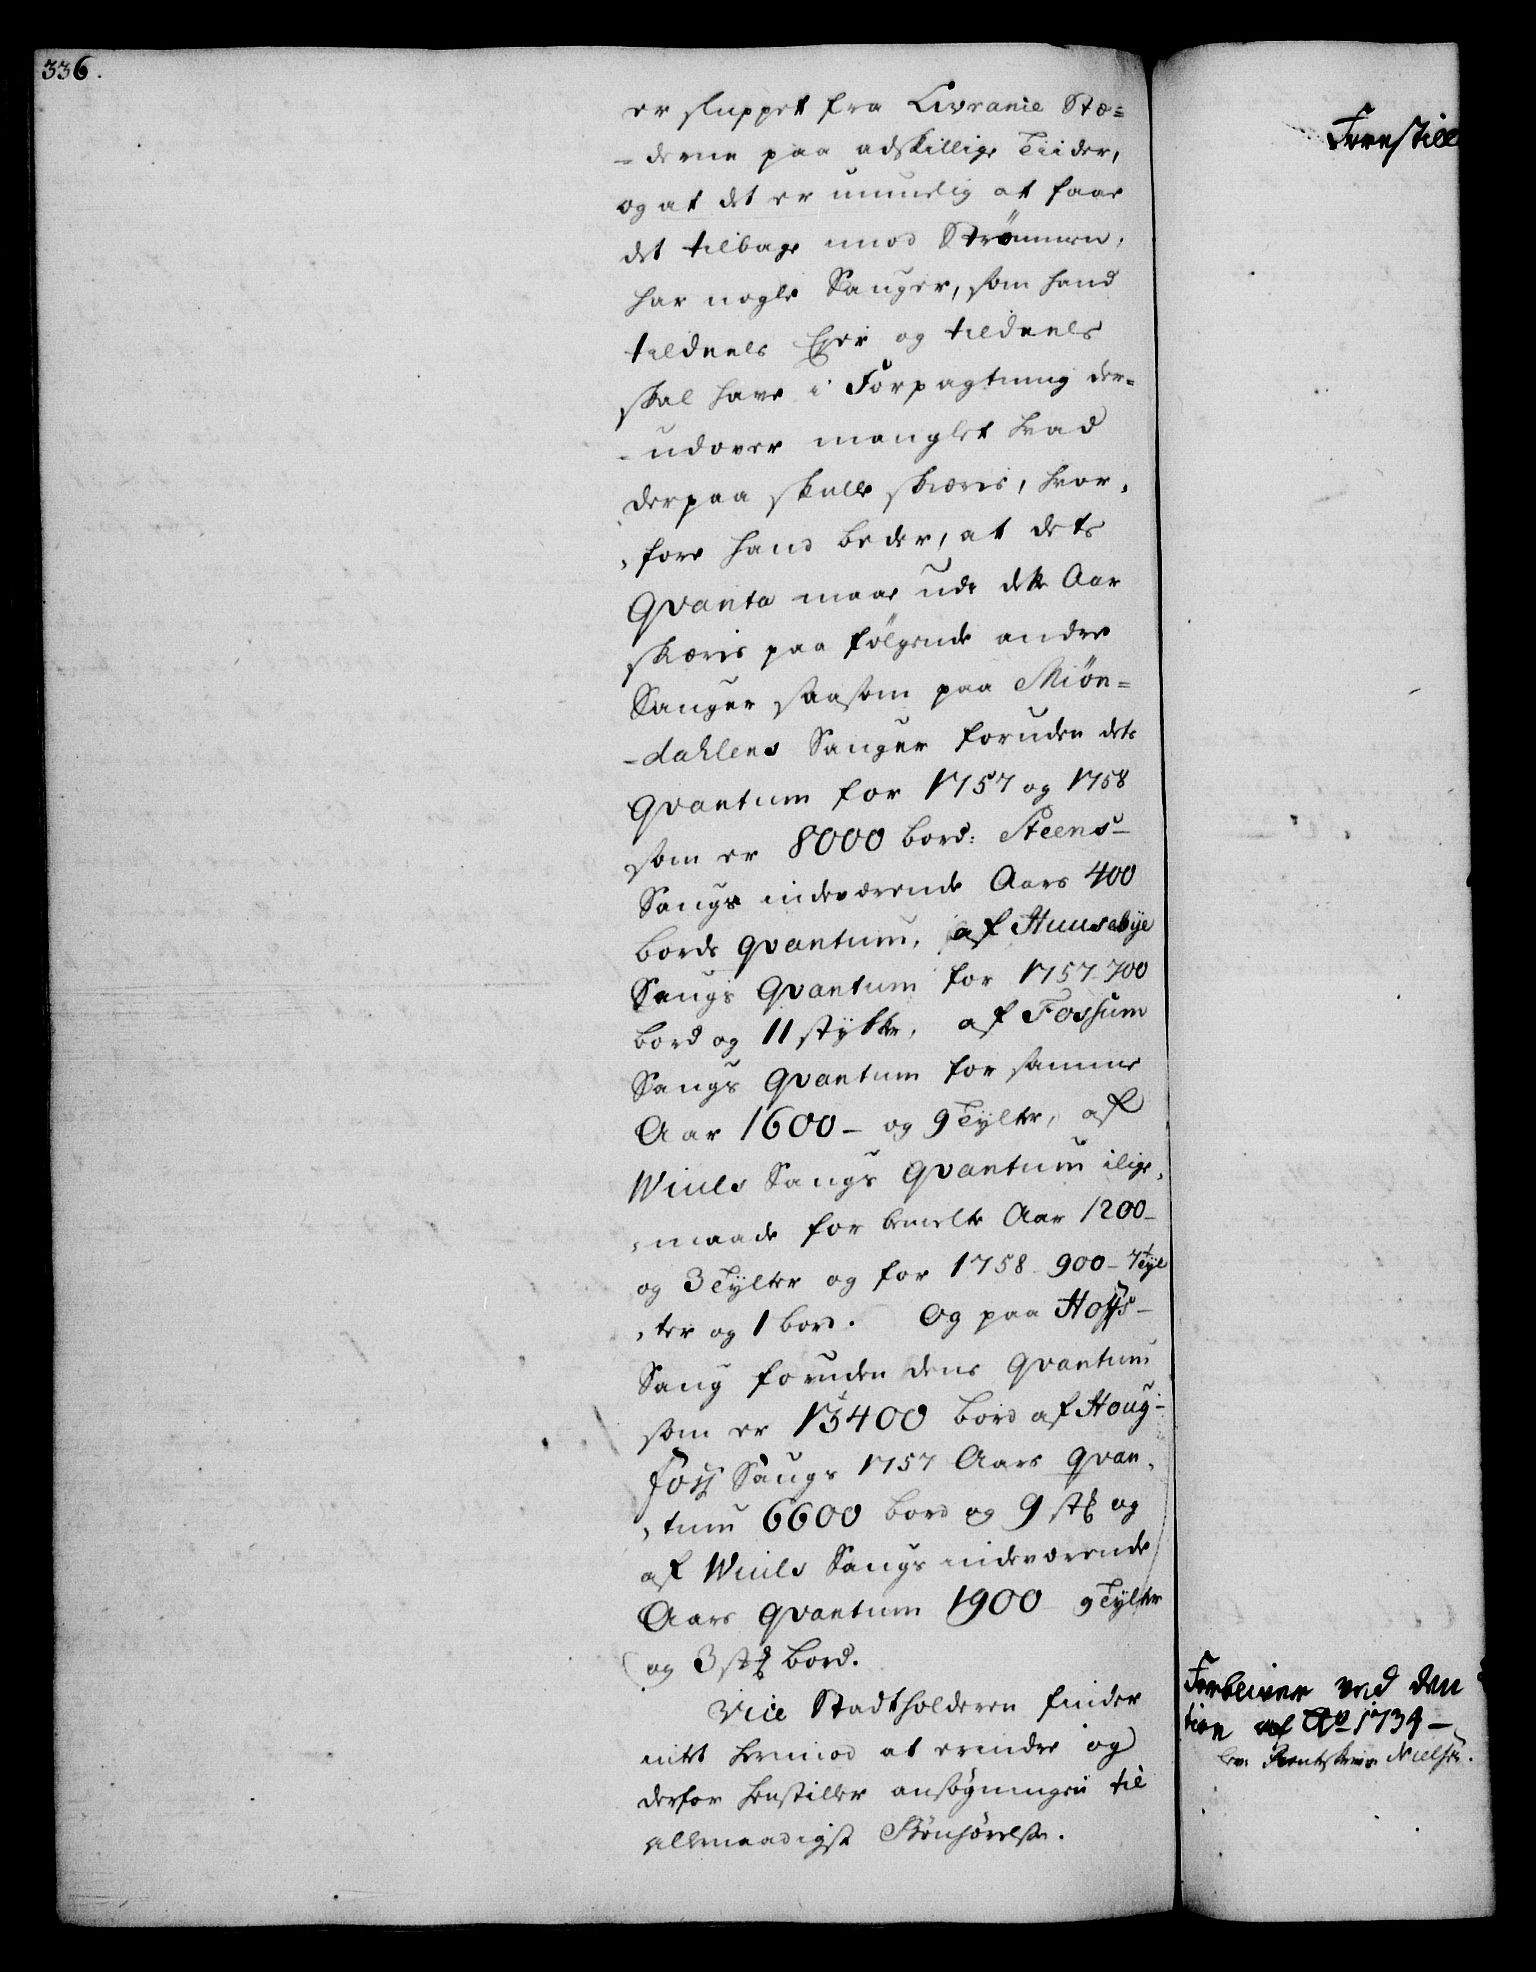 336.
er sluppet fra Livranie Stæ=
-derne paa adskillige Tiider,
og at det er umuelig at faae
det tilbage imod Strømmen,
har nogle Sauger, som hand
tildeels Ejer og tildeels
skal have i Forpagtning der=
-udover manglet hvad
derpaa skulle skæres, hvor,
,fore hand beder, at dets
Qvanta maae udi dette Aar
skæres paa følgende andre
Sauger saasom paa Miøn=
-dahlens Sauger foruden dets
Qvantum for 1757 og 1758
som er 8000 bord: Steens-
Saugs indeværende Aars 400
bords qvantum, af Huusebye
Saugs Qvantum for 1757 - 700
bord og 11 stykker, af Fossum
Saugs Qvantum for samme
Aar 1600 - og 9 Tylter, af
Wiuls Saugs Qvantum ilige,
,maade for bemelte Aar 1200-
og 3 Tylter og for 1758 900 - 7 Tyl
,ter og 1 bord. Og paa Hoffs-
Saug foruden dens qvantum
som er 13400 bord af Houg-
foss Saugs 1757 Aars qvan,
,tum 6600 bord og 9 stk og
af Wiuls Saugs indeværende
Aars qvantum 1900 - 9 Tylter
og 3 stk bord.
Vice Stadtholderen finder
intet herimod at erindre og
derfor henstiller ansøgningen til
allernaadigst Bønhørelse.
Forestill
Forbliver ved den
tion af Ao 1734 -
Nielsen.